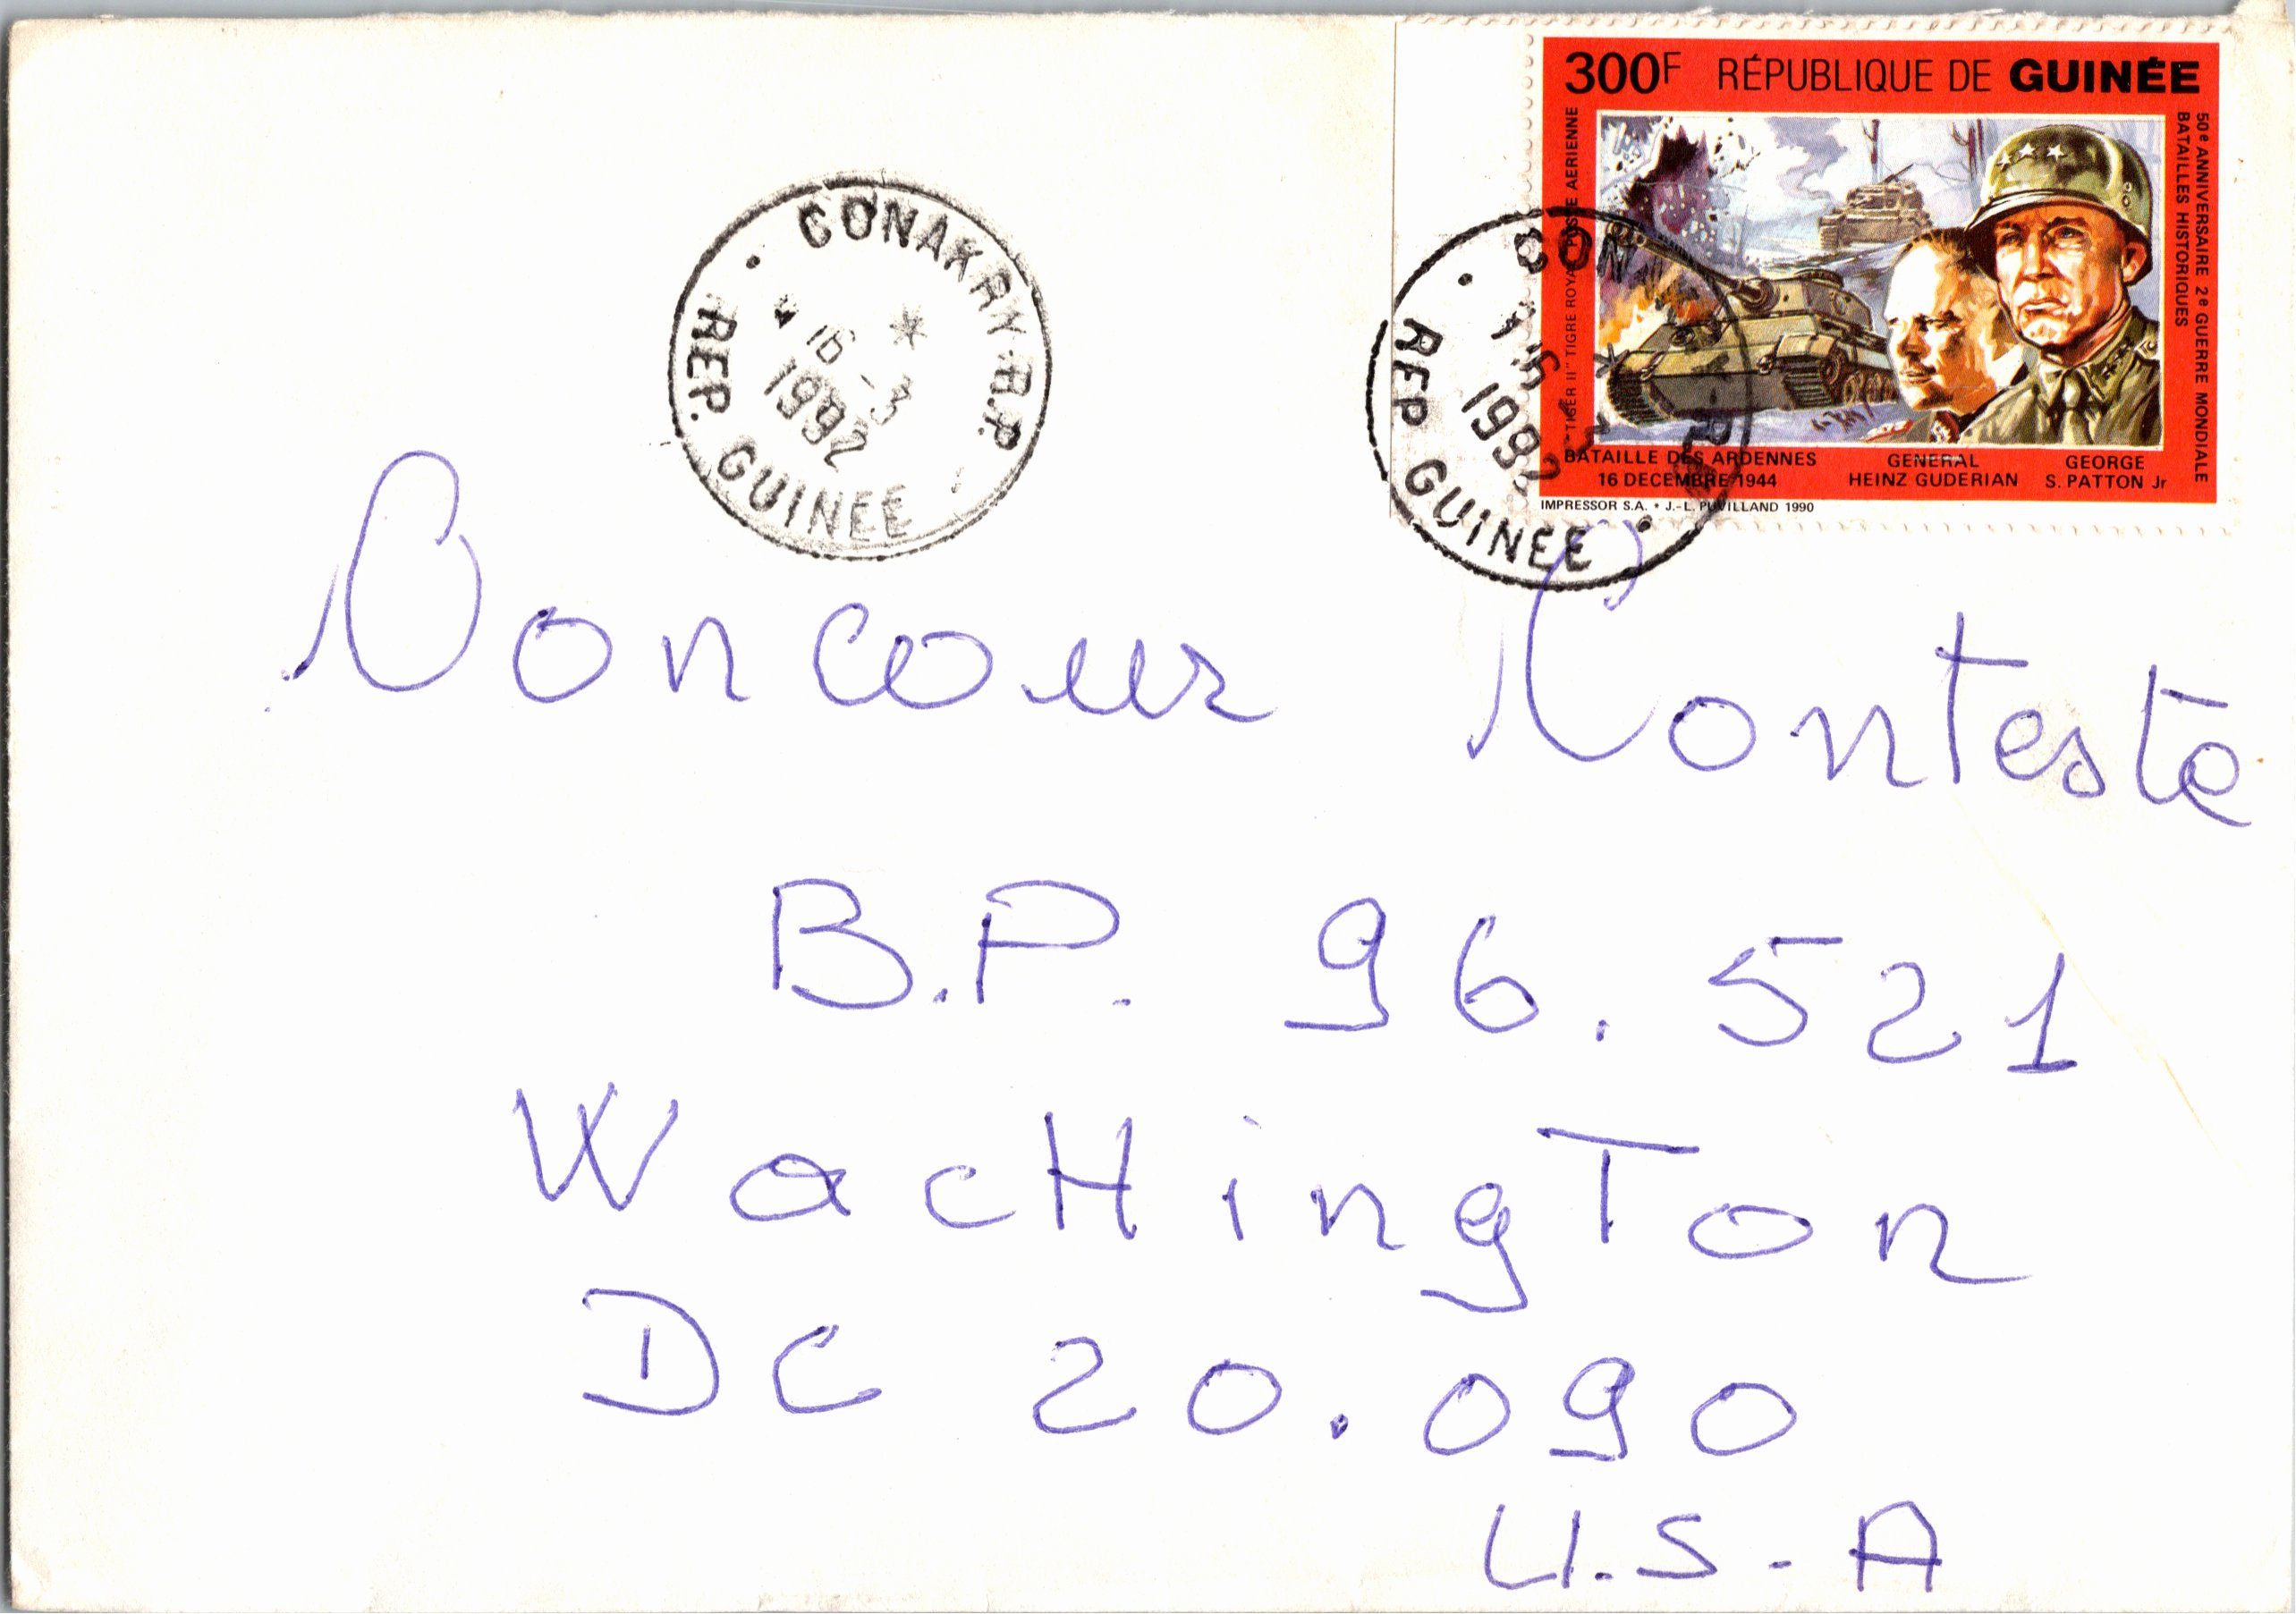 300F RÉPUBLIQUE DE GUINÉE
"TIGER II" TIGRE ROYAL POSTE AERIENNE
50e ANNIVERSAIRE 2e GUERRE MONDIALE
BATAILLES HISTORIQUES
BATAILLE DES ARDENNES
16 DECEMBRE 1944
GENERAL
HEINZ GUDERIAN
GEORGE
S. PATTON Jr
IMPRESSOR S.A. • J.-L. PUVILLAND 1990
CONAKRY-R.P.
* 16 -3 *
1992
REP. GUINEE
CON
16 3
1992
REP GUINEE
Concour Conteste
B.P. 96.521
WacHingTon
DC 20.090
U.S.A